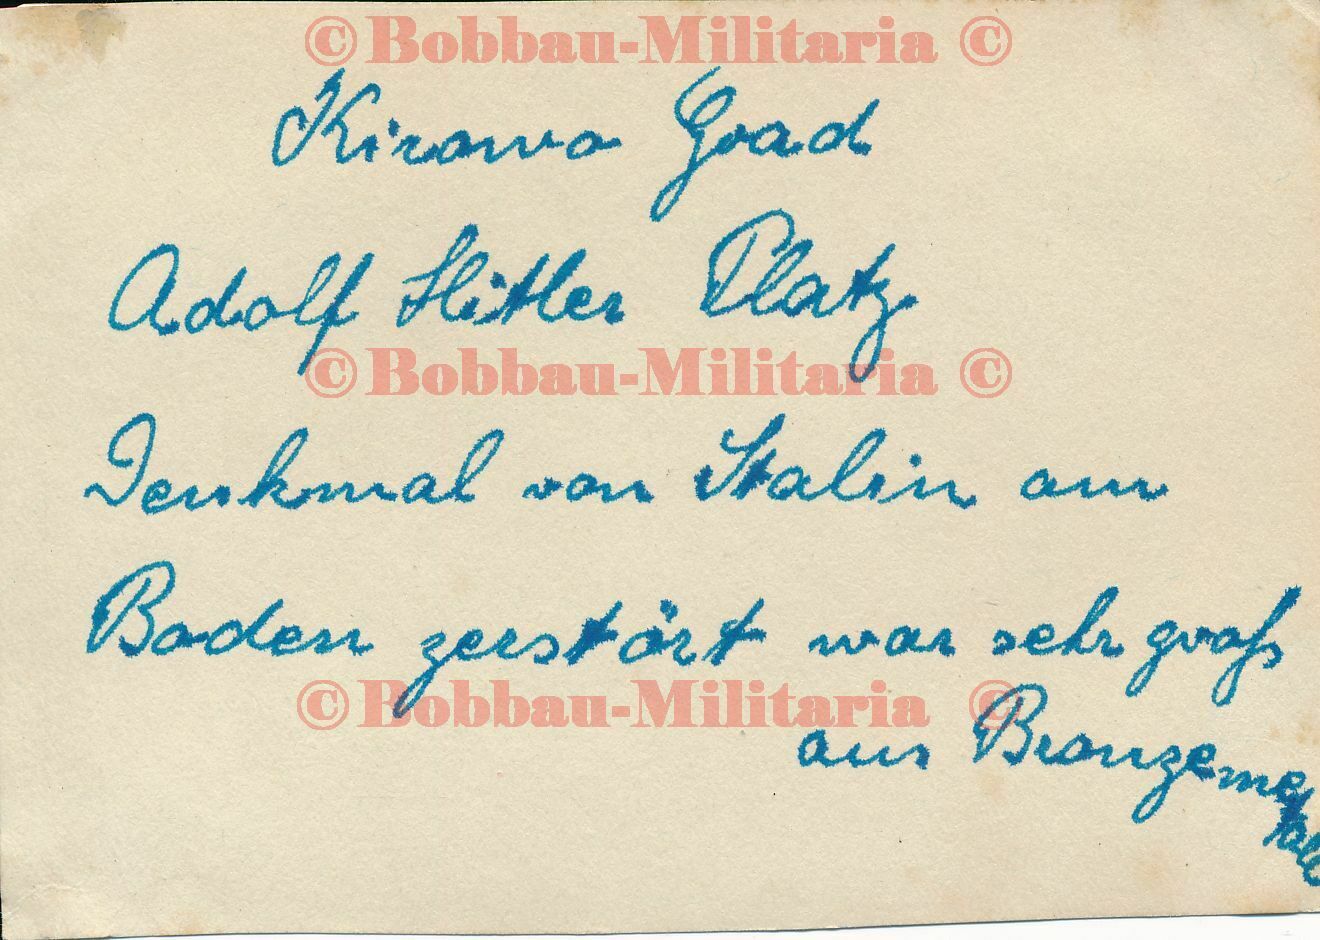 ©Bobbau-Militaria ©
Kirowo Grad
Adolf Hitler Platz
©Bobbau-Militaria ©
Denkmal von Stalin am
Boden zerstört war sehr groß
©Bobbau-Militaria ©
aus Bronzemetall